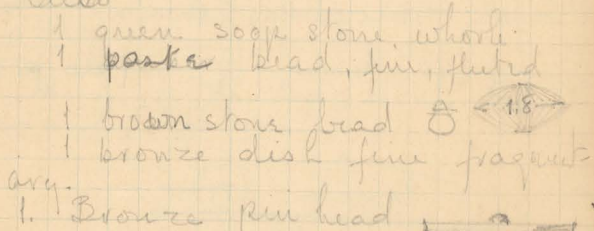 also
1 green soap stone whorl.
1 paste bead, fine, fluted
1 brown stone bead 1.8
1 bronze dish fine fragment-
ary.
1. Bronze pin head